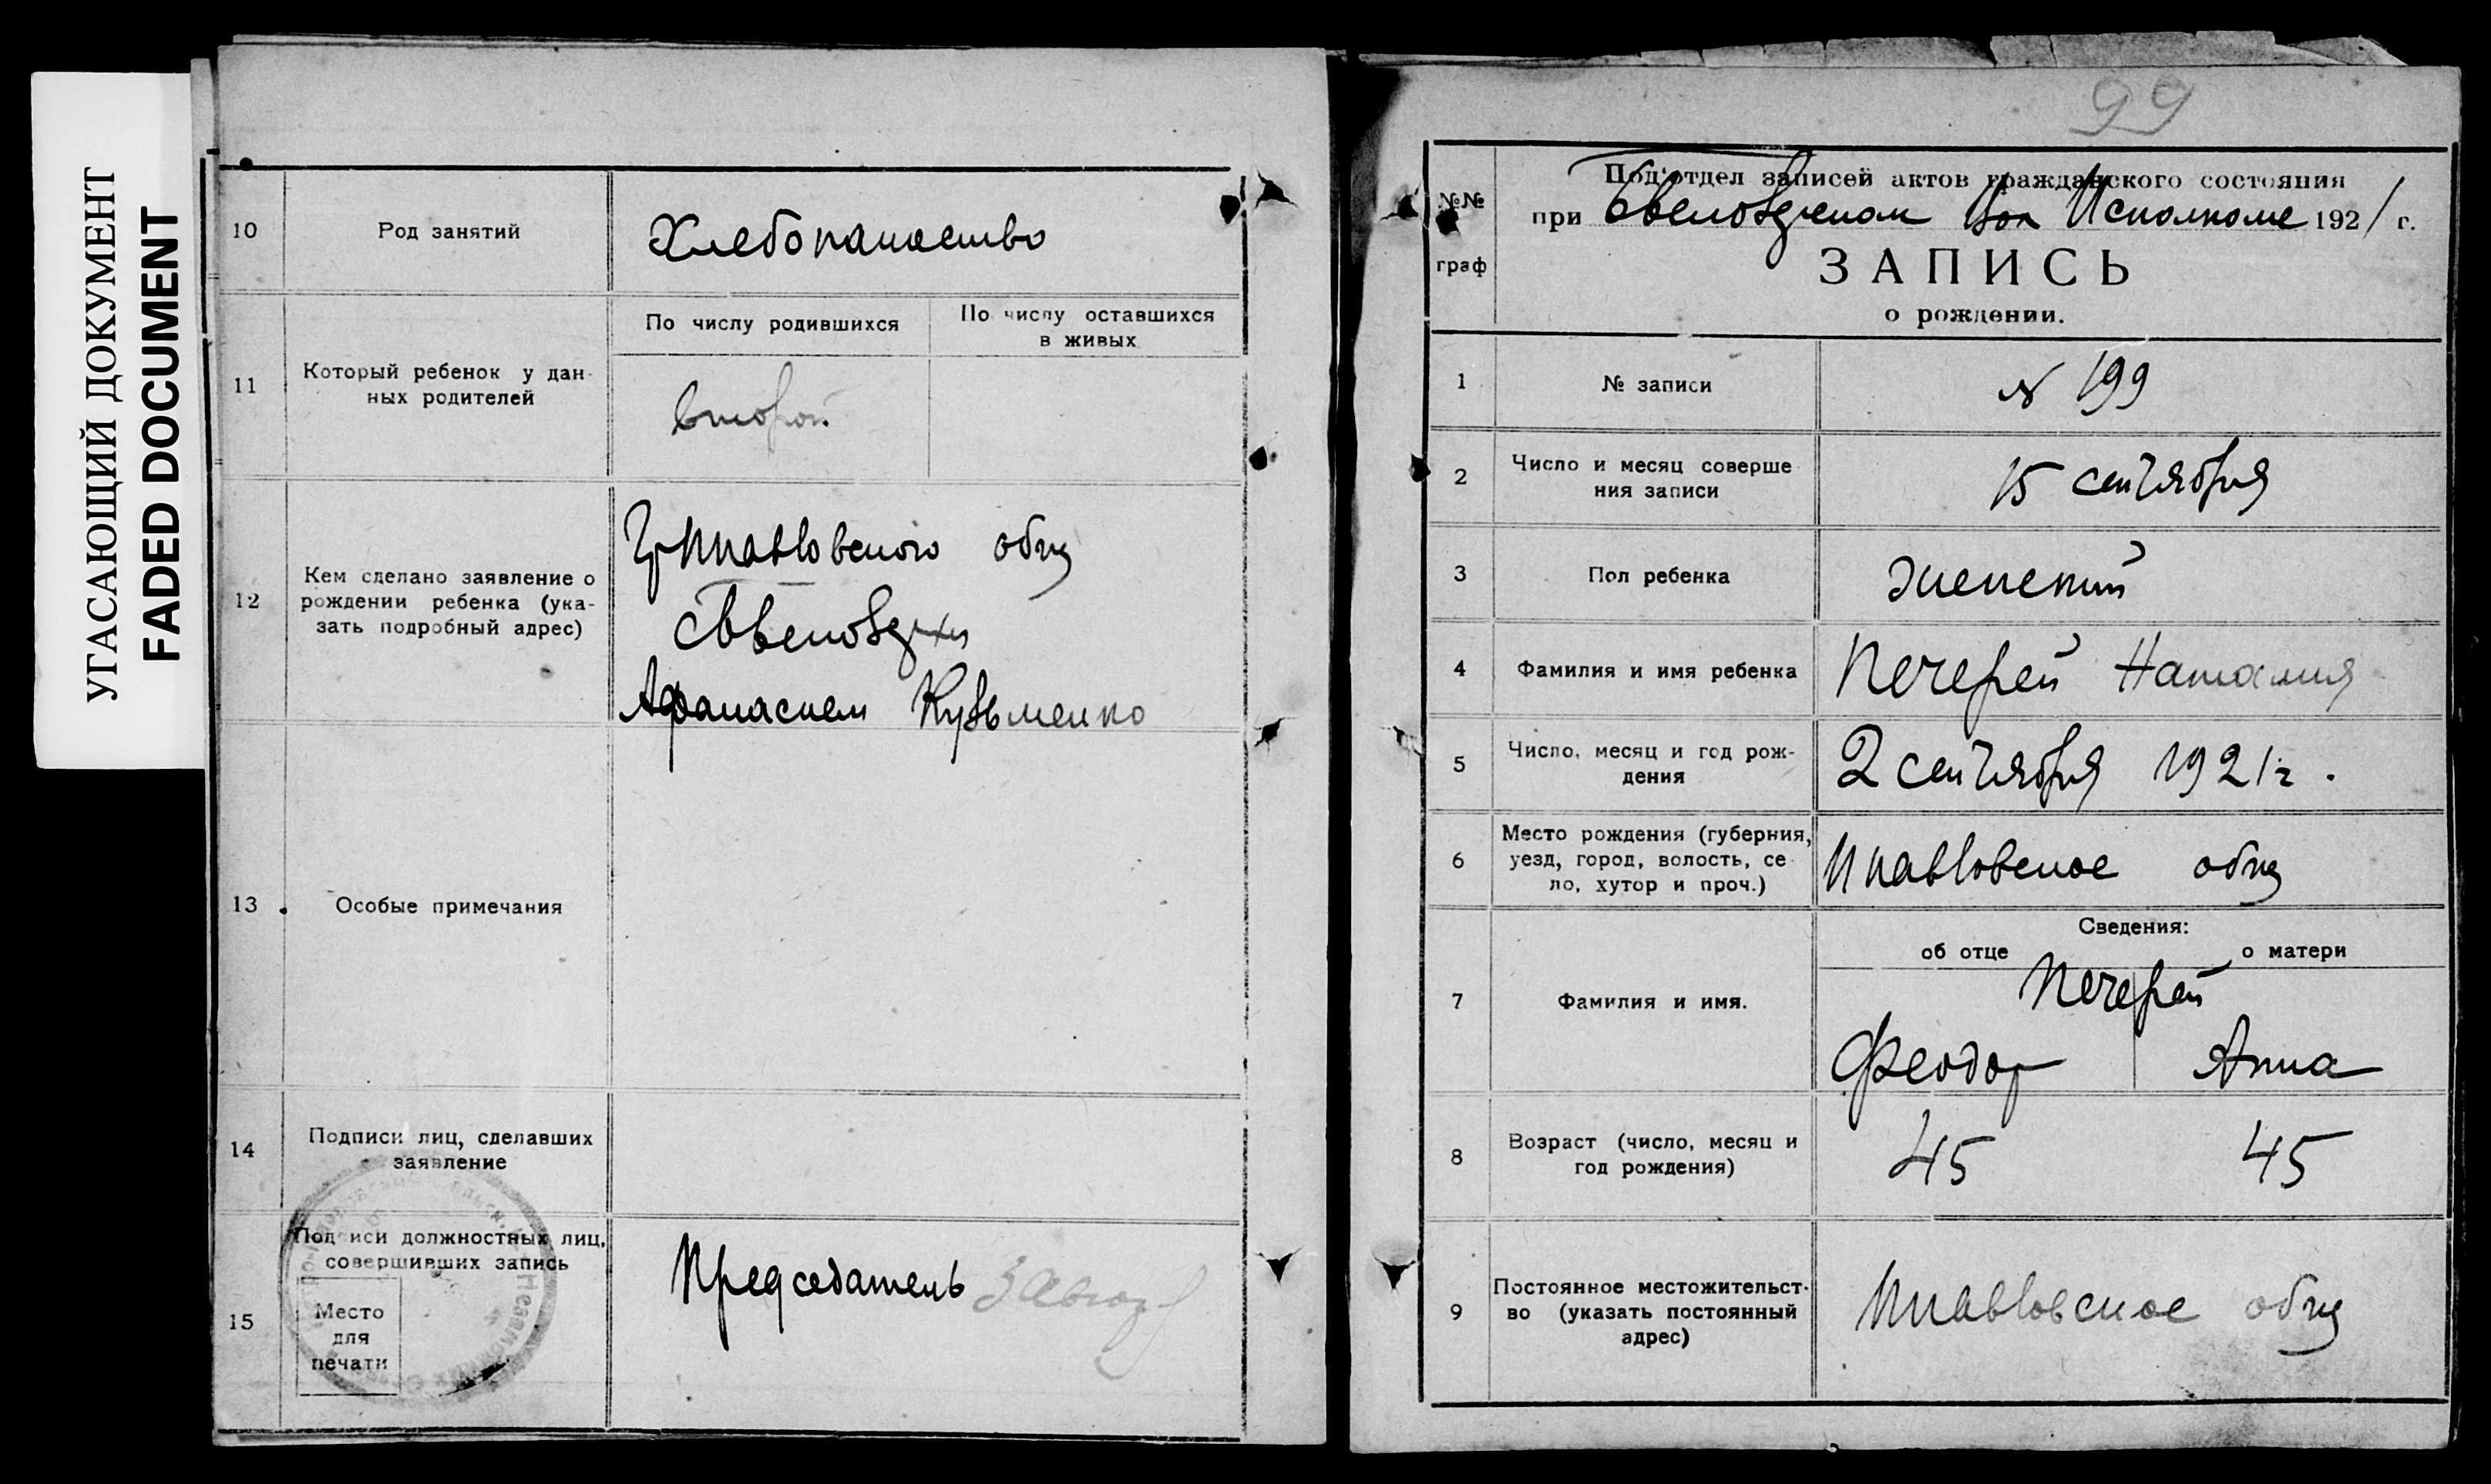 УГАСАЮЩИЙ ДОКУМЕНТ
FADED DOCUMENT
10
Род занятий
Хлебопашество
11
Который ребенок у дан-
ных родителей
По числу родившихся
По числу оставшихся
в живых
второй
12
Кем сделано заявление о
рождении ребенка (ука-
зать подробный адрес)
общ
Афанасием Кузьменко
13
Особые примечания
14
Подписи лиц, сделавших
заявление
15
Подписи должностных лиц,
совершивших запись
Место
для
печати
Председатель
99
№№
граф
Под'отдел записей актов гражданского состояния
при Вол Исполкоме 1921 г.
ЗАПИСЬ
о рождении.
1
№ записи
№ 199
2
Число и месяц соверше
ния записи
15 сентября
3
Пол ребенка
женский
4
Фамилия и имя ребенка
Печерей Наталия
5
Число, месяц и год рож-
дения
2 сентября 1921 г.
6
Место рождения (губерния,
уезд, город, волость, се-
ло, хутор и проч.)
общ
Сведения:
об отце
о матери
7
Фамилия и имя.
Печерей
Феодор
Анна
8
Возраст (число, месяц и
год рождения)
45
45
9
Постоянное местожительст-
во (указать постоянный
адрес)
общ